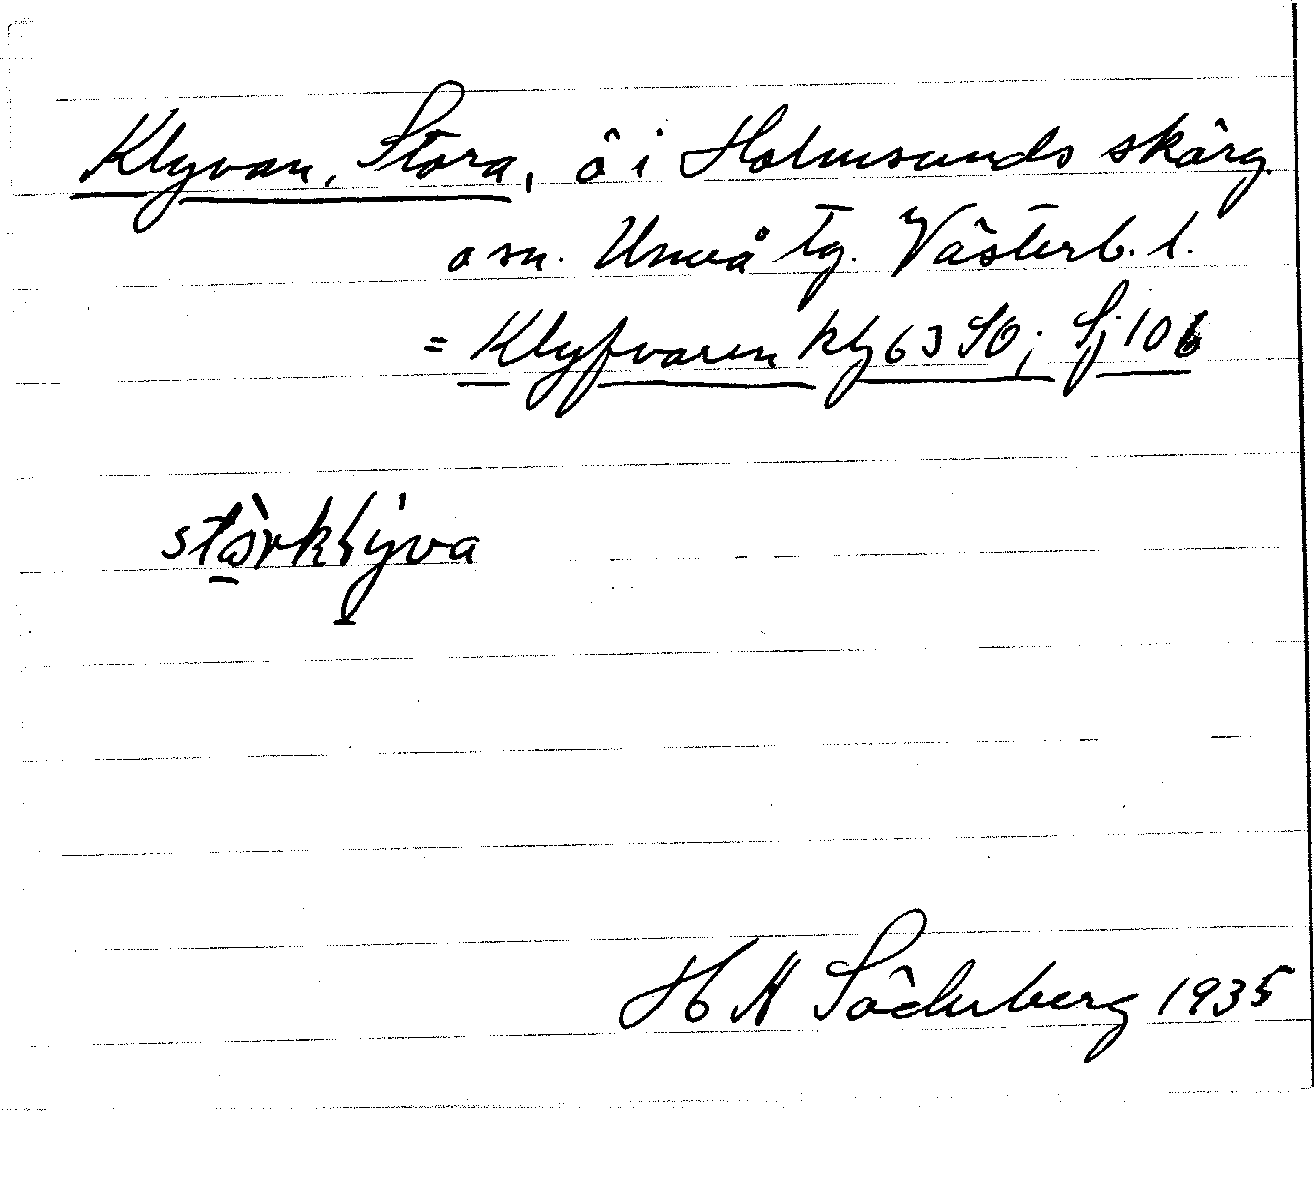 Klyvan, Stora, ö i Holmsunds skärg.
o sn. Umeå tg. Västerb. l.
= Klyfvaren kbl 63 SO; Sj 106
stòrkĺýva
H H Söderberg 1935